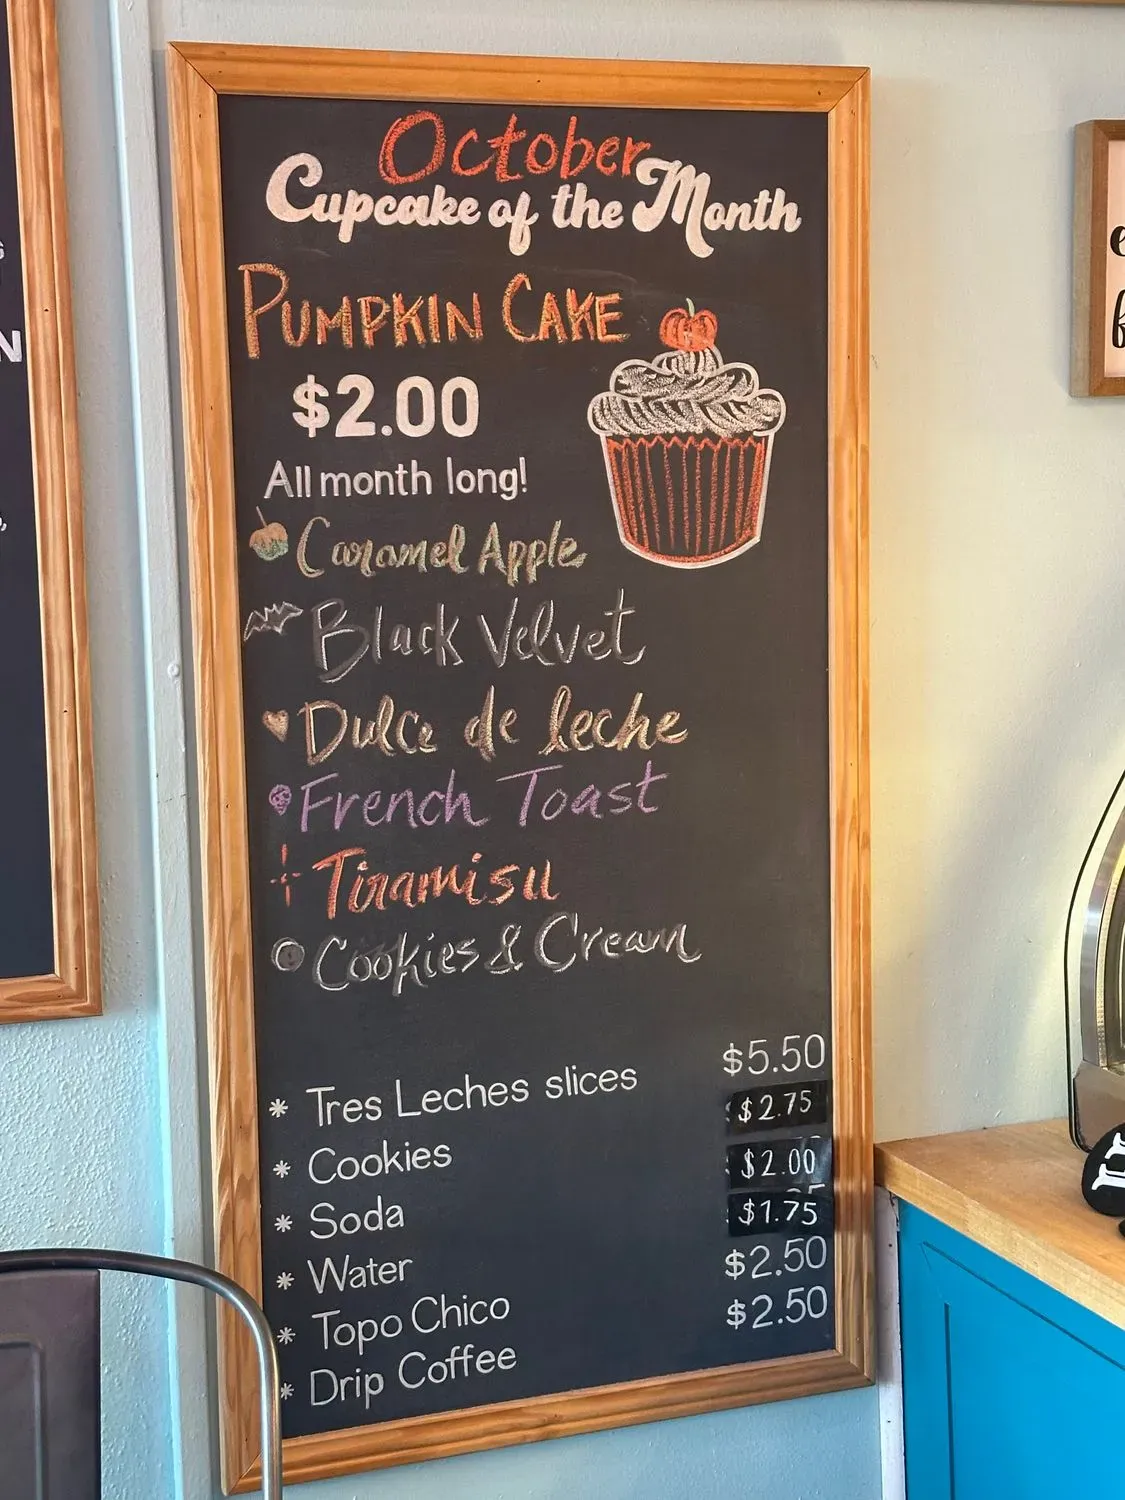 October
Cupcake of the Month
PUMPKIN CAKE
$2.00
All month long!
Caramel Apple
Black Velvet
Dulce de leche
French Toast
Tiramisu
Cookies & Cream
* Tres Leches slices $5.50
* Cookies $2.75
* Soda $2.00
* Water $1.75
* Topo Chico $2.50
* Drip Coffee $2.50